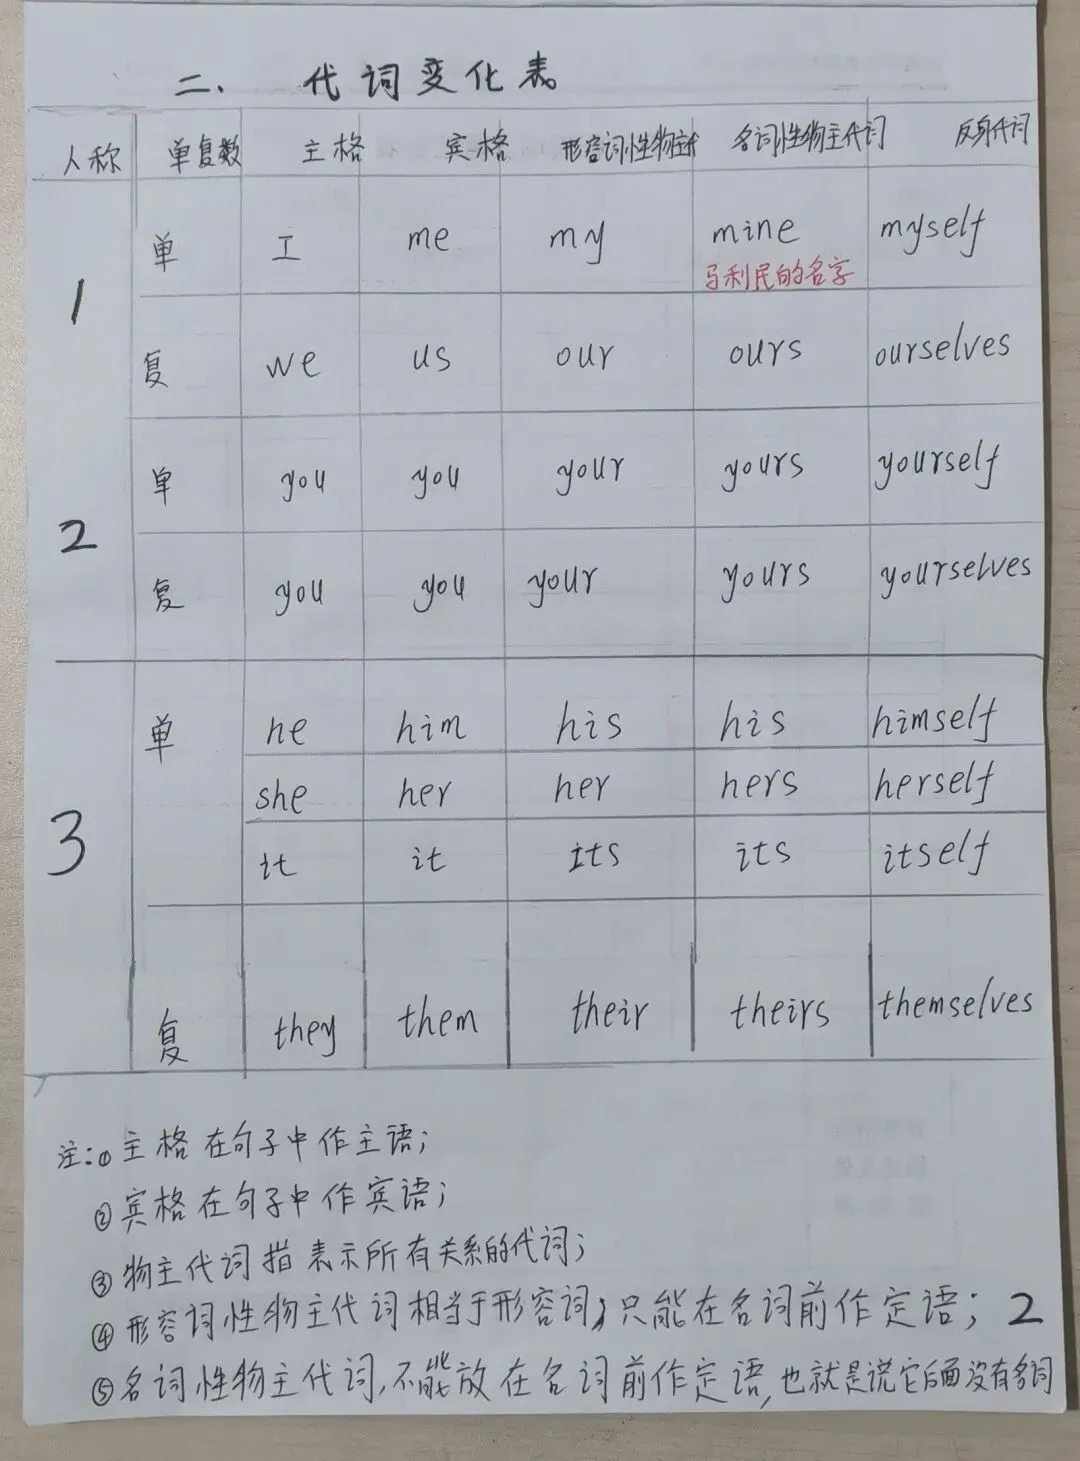 二、 代词变化表
人称 单复数 主格 宾格 形容词性物主代 名词性物主代词 反身代词
1 单 I me my mine myself
马利民的名字
复 we us our ours ourselves
2 单 you you your yours yourself
复 you you your yours yourselves
3 单 he him his his himself
she her her hers herself
it it its its itself
复 they them their theirs themselves
注:①主格在句子中作主语;
②宾格在句子中作宾语;
③物主代词指表示所有关系的代词;
④形容词性物主代词相当于形容词,只能在名词前作定语; 2
⑤名词性物主代词,不能放在名词前作定语,也就是说它后面没有名词